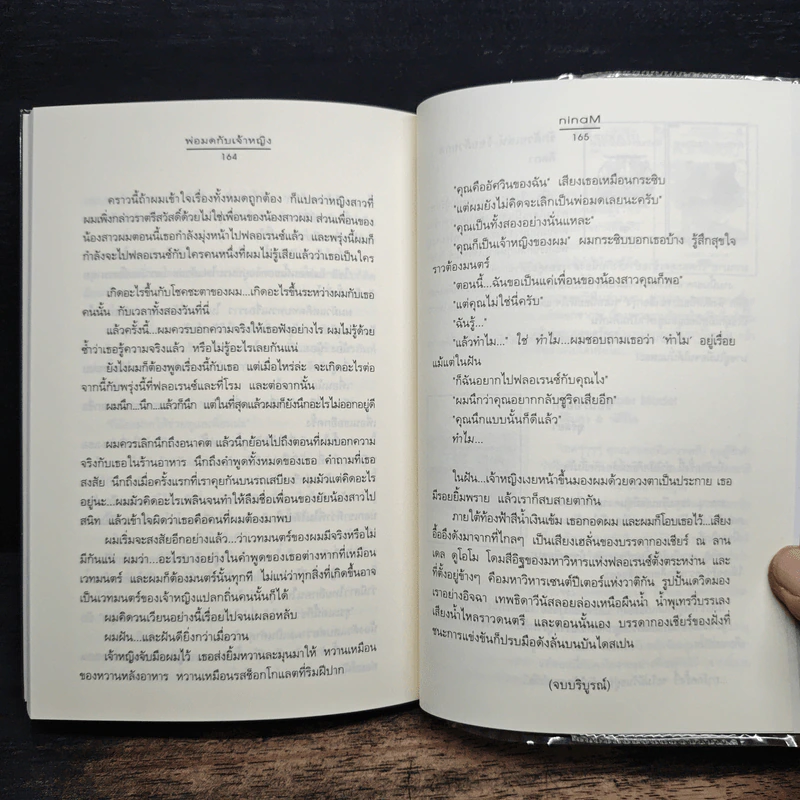 พ่อมดกับเจ้าหญิง
164
คราวนี้ถ้าผมเข้าใจเรื่องทั้งหมดถูกต้อง ก็แปลว่าหญิงสาวที่
ผมเพิ่งกล่าวราตรีสวัสดิ์ด้วยไม่ใช่เพื่อนของน้องสาวผม ส่วนเพื่อนของ
น้องสาวผมตอนนี้เธอกำลังมุ่งหน้าไปฟลอเรนซ์แล้ว และพรุ่งนี้ผมก็
กำลังจะไปฟลอเรนซ์กับใครคนหนึ่งที่ผมไม่รู้เสียแล้วว่าเธอเป็นใคร
เกิดอะไรขึ้นกับโชคชะตาของผม...เกิดอะไรขึ้นระหว่างผมกับเธอ
คนนั้น กับเวลาทั้งสองวันที่นี่
แล้วครั้งนี้...ผมควรบอกความจริงให้เธอฟังอย่างไร ผมไม่รู้ด้วย
ซ้ำว่าเธอรู้ความจริงแล้ว หรือไม่รู้อะไรเลยกันแน่
ยังไงผมก็ต้องพูดเรื่องนี้กับเธอ แต่เมื่อไหร่ล่ะ จะเกิดอะไรต่อ
จากนี้กับพรุ่งนี้ที่ฟลอเรนซ์และที่โรม และต่อจากนั้น
ผมนึก...นึก...แล้วก็นึก แต่ในที่สุดแล้วผมก็ยังนึกอะไรไม่ออกอยู่ดี
ผมควรเลิกนึกถึงอนาคต แล้วนึกย้อนไปถึงตอนที่ผมบอกความ
จริงกับเธอในร้านอาหาร นึกถึงคำพูดทั้งหมดของเธอ คำถามที่เธอ
สงสัย นึกถึงเมื่อครั้งแรกที่เราคุยกันบนรถเสบียง ผมมัวแต่คิดอะไร
อยู่นะ...ผมมัวคิดอะไรเพลินจนทำให้ลืมชื่อเพื่อนของยัยน้องสาวไป
สนิท แล้วเข้าใจผิดว่าเธอคือคนที่ผมต้องมาพบ
ผมเริ่มจะสงสัยอีกอย่างแล้ว...ว่าเวทมนตร์ของผมมีจริงหรือไม่
มีกันแน่ ผมว่า...อะไรบางอย่างในคำพูดของเธอต่างหากที่เหมือน
เวทมนตร์ และผมก็ต้องมนตร์นั้นทุกที ไม่แน่ว่าทุกสิ่งที่เกิดขึ้นอาจ
เป็นเวทมนตร์ของเจ้าหญิงแปลกถิ่นคนนั้นก็ได้
ผมคิดวนเวียนอย่างนี้เรื่อยไปจนเผลอหลับ
ผมฝัน...และฝันดียิ่งกว่าเมื่อวาน
เจ้าหญิงจับมือผมไว้ เธอส่งยิ้มหวานละมุนมาให้ หวานเหมือน
ของหวานหลังอาหาร หวานเหมือนรสช็อกโกแลตที่ริมฝีปาก
Manin
165
"คุณคืออัศวินของฉัน" เสียงเธอเหมือนกระซิบ
"แต่ผมยังไม่คิดจะเลิกเป็นพ่อมดเลยนะครับ"
"คุณเป็นทั้งสองอย่างนั่นแหละ"
"คุณก็เป็นเจ้าหญิงของผม" ผมกระซิบบอกเธอบ้าง รู้สึกสุขใจ
ราวต้องมนตร์
"ตอนนี้...ฉันขอเป็นแค่เพื่อนของน้องสาวคุณก็พอ"
"แต่คุณไม่ใช่นี่ครับ"
"ฉันรู้..."
"แล้วทำไม..." ใช่ ทำไม...ผมชอบถามเธอว่า 'ทำไม' อยู่เรื่อย
แม้แต่ในฝัน
"ก็ฉันอยากไปฟลอเรนซ์กับคุณไง"
"ผมนึกว่าคุณอยากกลับซูริคเสียอีก"
"คุณนึกแบบนั้นก็ดีแล้ว"
ทำไม...
ในฝัน...เจ้าหญิงเงยหน้าขึ้นมองผมด้วยดวงตาเป็นประกาย เธอ
มีรอยยิ้มพราย แล้วเราก็สบสายตากัน
ภายใต้ท้องฟ้าสีน้ำเงินเข้ม เธอกอดผม และผมก็โอบเธอไว้...เสียง
อื้ออึงดังมาจากที่ไกลๆ เป็นเสียงเฮลั่นของบรรดากองเชียร์ ณ ลาน
เดล ดูโอโม โดมสีอิฐของมหาวิหารแห่งฟลอเรนซ์ตั้งตระหง่าน และ
ที่ตั้งอยู่ข้างๆ คือมหาวิหารเซนต์ปีเตอร์แห่งวาติกัน รูปปั้นเดวิดมอง
เราอย่างอิจฉา เทพธิดาวีนัสลอยล่องเหนือผืนน้ำ น้ำพุเทรวี่บรรเลง
เสียงน้ำไหลราวดนตรี และตอนนั้นเอง บรรดากองเชียร์ของฝั่งที่
ชนะการแข่งขันก็ปรบมือดังลั่นบนบันไดสเปน
(จบบริบูรณ์)